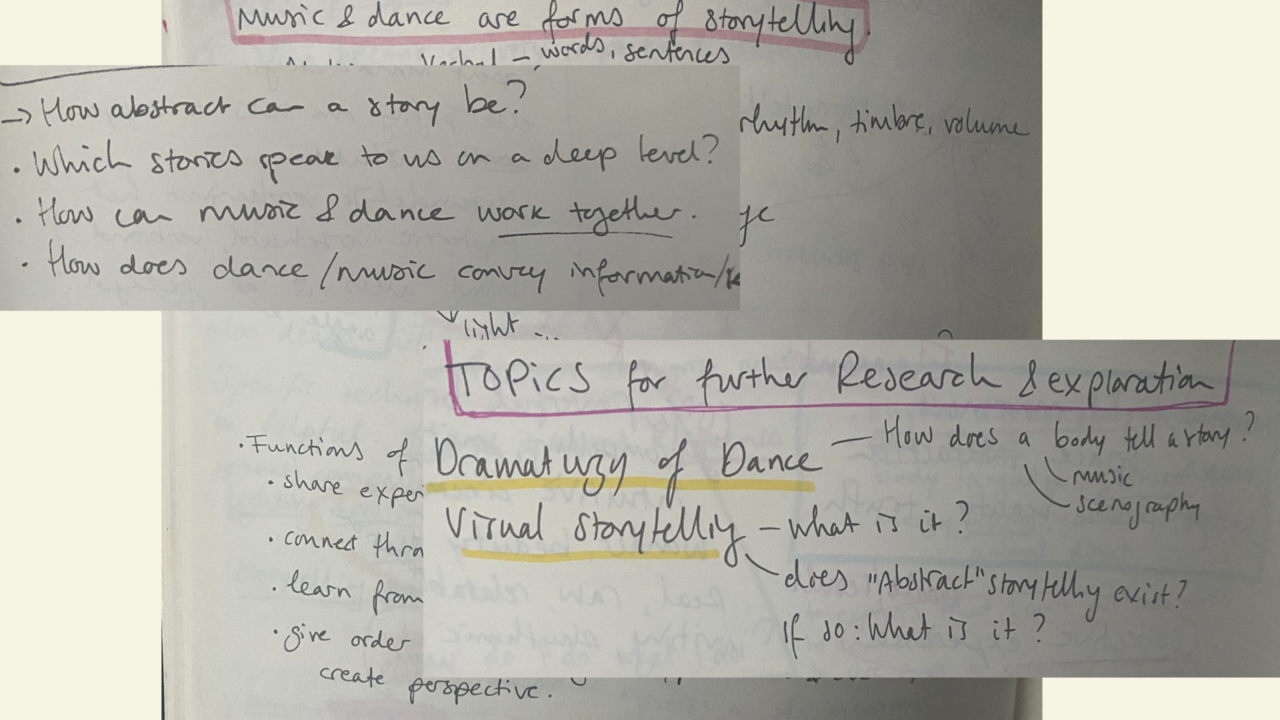 Music & dance are forms of storytelling.
Verbal – words, sentences
→ How abstract can a story be?
rhythm, timbre, volume
• Which stories speak to us on a deep level?
• How can music & dance work together.
• How does dance/music convey information/
light ...
TOPiCS for further Research & exploration
• Functions of
• share experi
• connect thro
• learn from
• give order
create perspective.
Dramaturgy of Dance — How does a body tell a story?
music
scenography
Visual storytelling – what is it?
does "Abstract" storytelling exist?
If so: What is it?